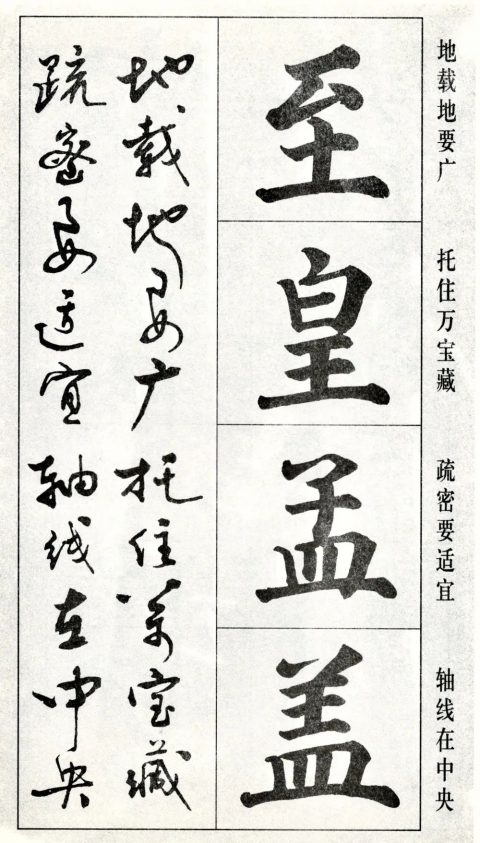 地载地要广
托住万宝藏
疏密要适宜
轴线在中央
至
皇
孟
盖
地载地要广托住万宝藏
疏密要适宜轴线在中央